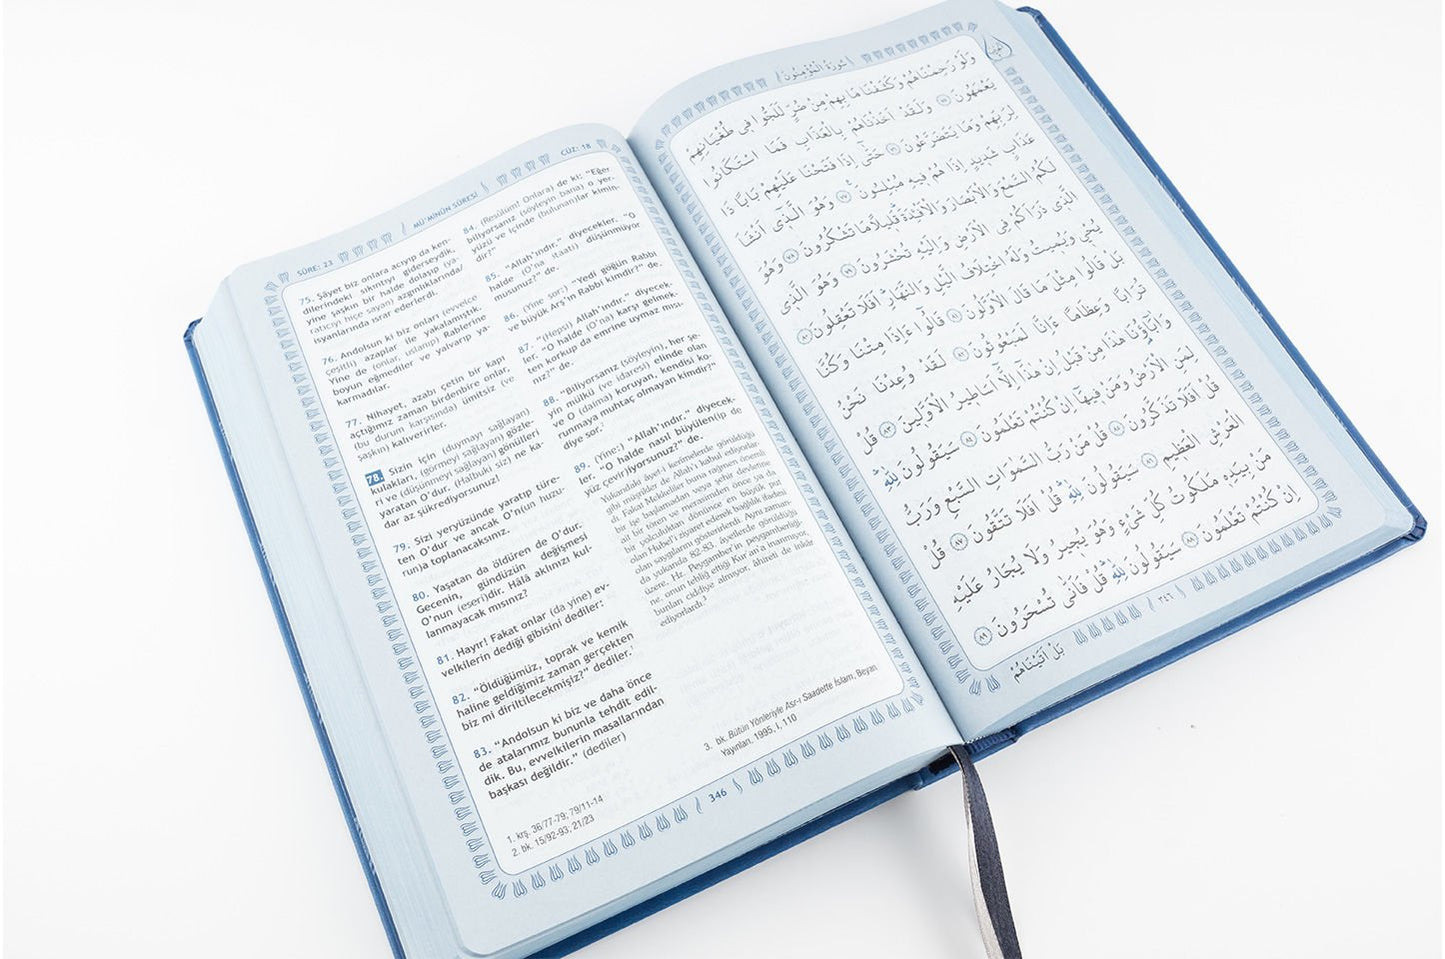 SÛRE: 23
MÜ'MİNÛN SÛRESİ
CÜZ: 18
75. Şâyet biz onlara acıyıp da ken-
dilerindeki sıkıntıyı giderseydik,
yine şaşkın bir halde dolaşıp (ya-
ratıcıyı hiçe sayan) azgınlıklarında/
isyanlarında ısrar ederlerdi.
76. Andolsun ki biz onları (evvelce
çeşitli) azaplar ile yakalamıştık.
Yine de (onlar, uslanıp) Rablerine
boyun eğmediler ve yalvarıp ya-
karmadılar.
77. Nihayet, azabı çetin bir kapı
açtığımız zaman birdenbire onlar,
(bu durum karşısında) ümitsiz (ve
şaşkın) kalıverirler.
78. Sizin için (duymayı sağlayan)
kulakları, (görmeyi sağlayan) gözle-
ri ve (düşünmeyi sağlayan) gönülleri
yaratan O'dur. (Halbuki siz) ne ka-
dar az şükrediyorsunuz!
79. Sizi yeryüzünde yaratıp türe-
ten O'dur ve ancak O'n(un huzu-
run)a toplanacaksınız.
80. Yaşatan da öldüren de O'dur.
Gecenin, gündüzün değişmesi
O'nun (eseri)dir. Hâlâ aklınızı kul-
lanmayacak mısınız?
81. Hayır! Fakat onlar (da yine) ev-
velkilerin dediği gibisini dediler:
82. “Öldüğümüz, toprak ve kemik
haline geldiğimiz zaman gerçekten
biz mi diriltilecekmişiz?” dediler.¹
83. “Andolsun ki biz ve daha önce
de atalarımız bununla tehdit edil-
dik. Bu, evvelkilerin masallarından
başkası değildir.” (dediler)
1. krş. 36/77-79; 79/11-14
2. bk. 15/92-93; 21/23
84. (Resûlüm! Onlara) de ki: “Eğer
biliyorsanız (söyleyin bana) o yer-
yüzü ve içinde (bulunan)lar kimin-
dir?”
85. “Allah'ındır,” diyecekler. “O
halde (O'na itaati) düşünmüyor
musunuz?” de.
86. (Yine sor:) “Yedi göğün Rabbi
ve büyük Arş'ın Rabbi kimdir?” de.
87. “(Hepsi) Allah'ındır,” diyecek-
ler. “O halde (O'na) karşı gelmek-
ten korkup da emrine uymaz mısı-
nız?” de.
88. “Biliyorsanız (söyleyin), her şe-
yin mülkü (ve idaresi) elinde olan
ve O (daima) koruyan, kendisi ko-
runmaya muhtaç olmayan kimdir?”
diye sor.
89. (Yine:) “Allah'ındır,” diyecek-
ler. “O halde nasıl büyülen(ip de
yüz çevir)iyorsunuz?” de.
Yukarıdaki âyet-i kerimelerde görüldüğü
gibi müşrikler de Allah'ı kabul ediyorlar-
dı. Fakat Mekkeliler buna rağmen önemli
bir işe başlamadan veya şehir devletine
ait bir tören ve merasimden önce ya da
bir yolculuktan dönünce en büyük put
olan Hubel'i ziyaret ederek bağlılık ifadesi
olan saygılarını gösterirlerdi. Aynı zaman-
da yukarıda 82-83. âyetlerde görüldüğü
üzere, Hz. Peygamber'in peygamberliği-
ne, onun tebliğ ettiği Kur'an'a inanmıyor,
bunları ciddiye almıyor, âhireti de inkâr
ediyorlardı.³
3. bk. Bütün Yönleriyle Asr-ı Saadette İslâm, Beyan
Yayınları, 1995, I, 110
346
سُورَةُ الْمُؤْمِنُونَ
وَلَوْ رَحِمْنَاهُمْ وَكَشَفْنَا مَا بِهِمْ مِنْ ضُرٍّ لَلَجُّوا فِي طُغْيَانِهِمْ
يَعْمَهُونَ ﴿٧٥﴾ وَلَقَدْ اَخَذْنَاهُمْ بِالْعَذَابِ فَمَا اسْتَكَانُوا
لِرَبِّهِمْ وَمَا يَتَضَرَّعُونَ ﴿٧٦﴾ حَتّٰى اِذَا فَتَحْنَا عَلَيْهِمْ بَابًا ذَا
عَذَابٍ شَدِيدٍ اِذَا هُمْ فِيهِ مُبْلِسُونَ ﴿٧٧﴾ وَهُوَ الَّذِي اَنْشَاَ
لَكُمُ السَّمْعَ وَالْاَبْصَارَ وَالْاَفْـِٔدَةَ قَلِيلًا مَا تَشْكُرُونَ ﴿٧٨﴾ وَهُوَ
الَّذِي ذَرَاَكُمْ فِي الْاَرْضِ وَاِلَيْهِ تُحْشَرُونَ ﴿٧٩﴾ وَهُوَ الَّذِي
يُحْيِي وَيُمِيتُ وَلَهُ اخْتِلَافُ الَّيْلِ وَالنَّهَارِ اَفَلَا تَعْقِلُونَ ﴿٨٠﴾
بَلْ قَالُوا مِثْلَ مَا قَالَ الْاَوَّلُونَ ﴿٨١﴾ قَالُوا ءَاِذَا مِتْنَا وَكُنَّا
تُرَابًا وَعِظَامًا ءَاِنَّا لَمَبْعُوثُونَ ﴿٨٢﴾ لَقَدْ وُعِدْنَا نَحْنُ
وَاٰبَاؤُنَا هٰذَا مِنْ قَبْلُ اِنْ هٰذَا اِلَّا اَسَاطِيرُ الْاَوَّلِينَ ﴿٨٣﴾ قُلْ
لِمَنِ الْاَرْضُ وَمَنْ فِيهَا اِنْ كُنْتُمْ تَعْلَمُونَ ﴿٨٤﴾ سَيَقُولُونَ لِلّٰهِ
قُلْ اَفَلَا تَذَكَّرُونَ ﴿٨٥﴾ قُلْ مَنْ رَبُّ السَّمٰوَاتِ السَّبْعِ وَرَبُّ
الْعَرْشِ الْعَظِيمِ ﴿٨٦﴾ سَيَقُولُونَ لِلّٰهِ قُلْ اَفَلَا تَتَّقُونَ ﴿٨٧﴾ قُلْ
مَنْ بِيَدِهِ مَلَكُوتُ كُلِّ شَيْءٍ وَهُوَ يُجِيرُ وَلَا يُجَارُ عَلَيْهِ
اِنْ كُنْتُمْ تَعْلَمُونَ ﴿٨٨﴾ سَيَقُولُونَ لِلّٰهِ قُلْ فَاَنّٰى تُسْحَرُونَ ﴿٨٩﴾
٣٤٦
بَلْ اَتَيْنَاهُمْ